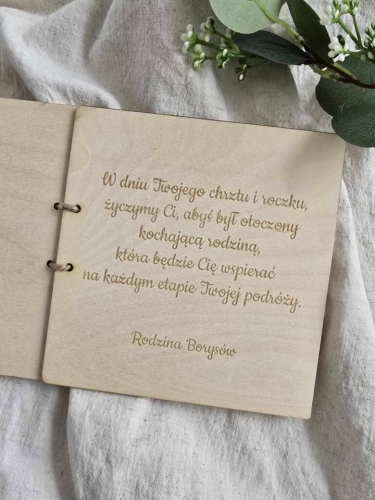 W dniu Twojego chrztu i roczku,
życzymy Ci, abyś był otoczony
kochającą rodziną,
która będzie Cię wspierać
na każdym etapie Twojej podróży.
Rodzina Borysów